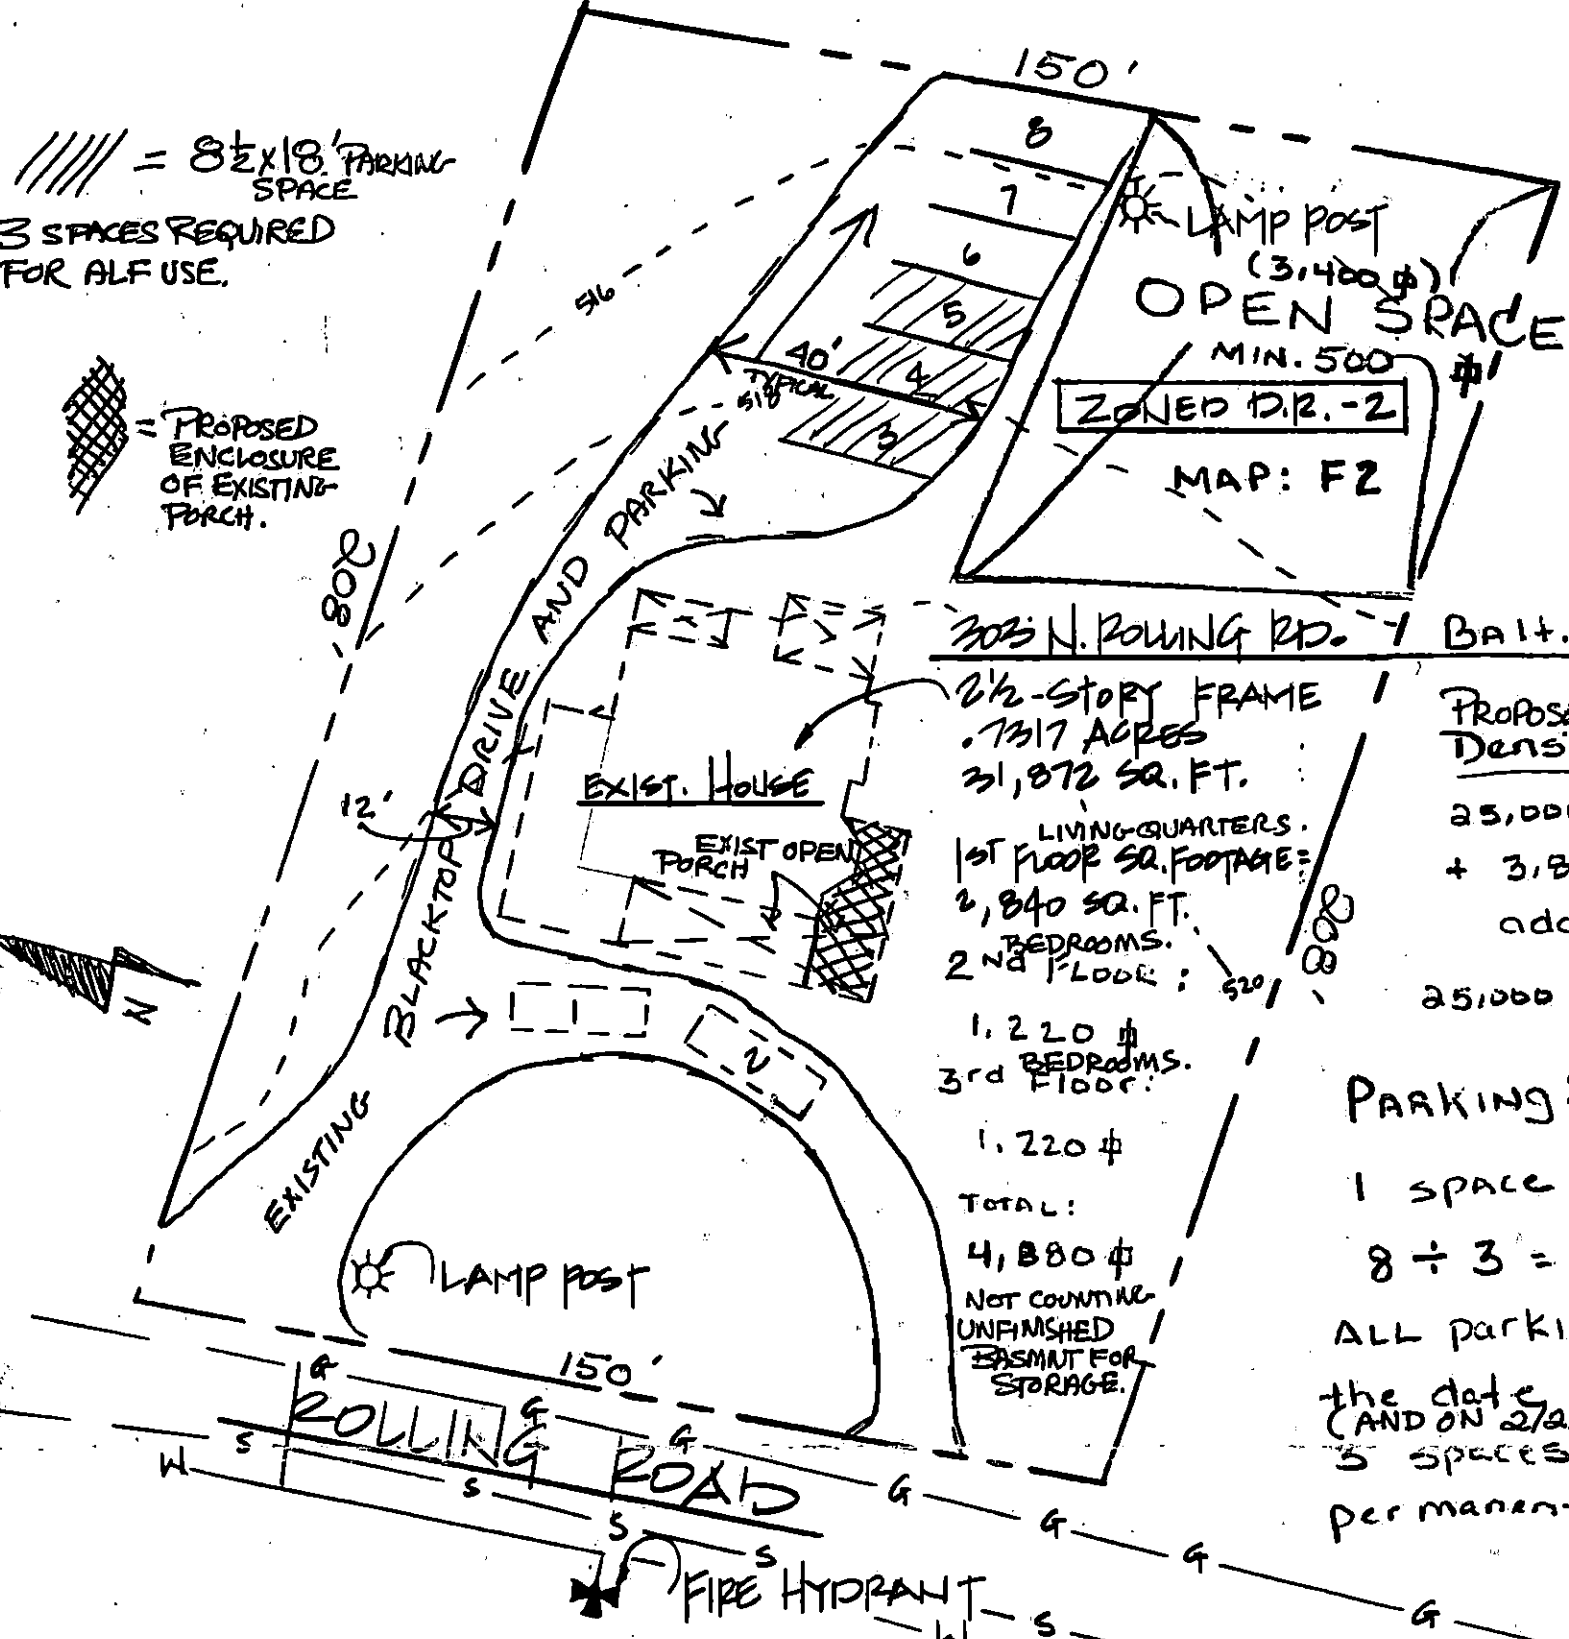 150'
= 8½x18' PARKING
SPACE
3 SPACES REQUIRED
FOR ALF USE.
= PROPOSED
ENCLOSURE
OF EXISTING
PORCH.
8
7
6
5
4
3
40'
TYPICAL
516
518
LAMP POST
(3,400 ⏍)
OPEN SPACE
MIN. 500 ⏍
ZONED D.R.-2
MAP: F2
208'
EXISTING BLACKTOP DRIVE AND PARKING
12'
N
EXIST. HOUSE
EXIST OPEN
PORCH
2
303 N. ROLLING RD. Balt.
2½-STORY FRAME
.7317 ACRES
31,872 SQ. FT.
LIVING QUARTERS.
1ST FLOOR SQ. FOOTAGE=
2,840 SQ. FT.
BEDROOMS.
2Nd FLOOR:
1.220 ⏍
BEDROOMS.
3rd Floor:
1.220 ⏍
TOTAL:
4,880 ⏍
NOT COUNTING
UNFINISHED
BASMNT FOR
STORAGE.
520
208'
PROPOSE
Dens
25,000
+ 3,8
add
25,000
PARKING:
1 space
8 ÷ 3 =
ALL parki
the date
(AND ON 2/2
3 spaces
permanen
LAMP POST
150'
ROLLING ROAD
G G G G G G G
S S S S S
W
FIRE HYDRANT
W